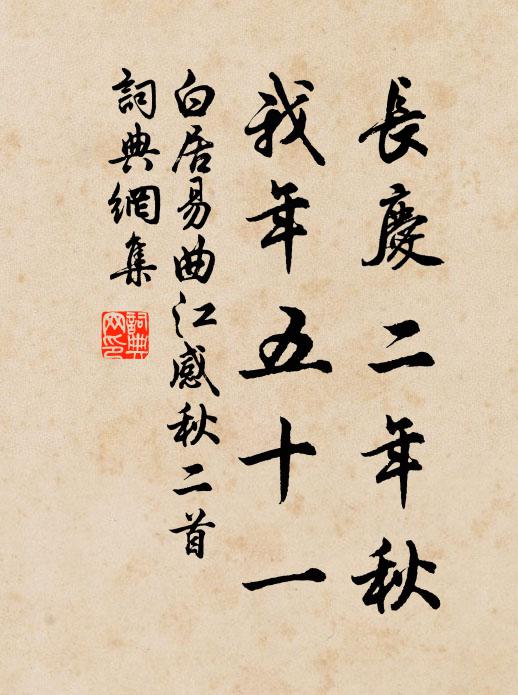 長慶二年秋
我年五十一
白居易曲江感秋二首
詞典網集
詞典網印